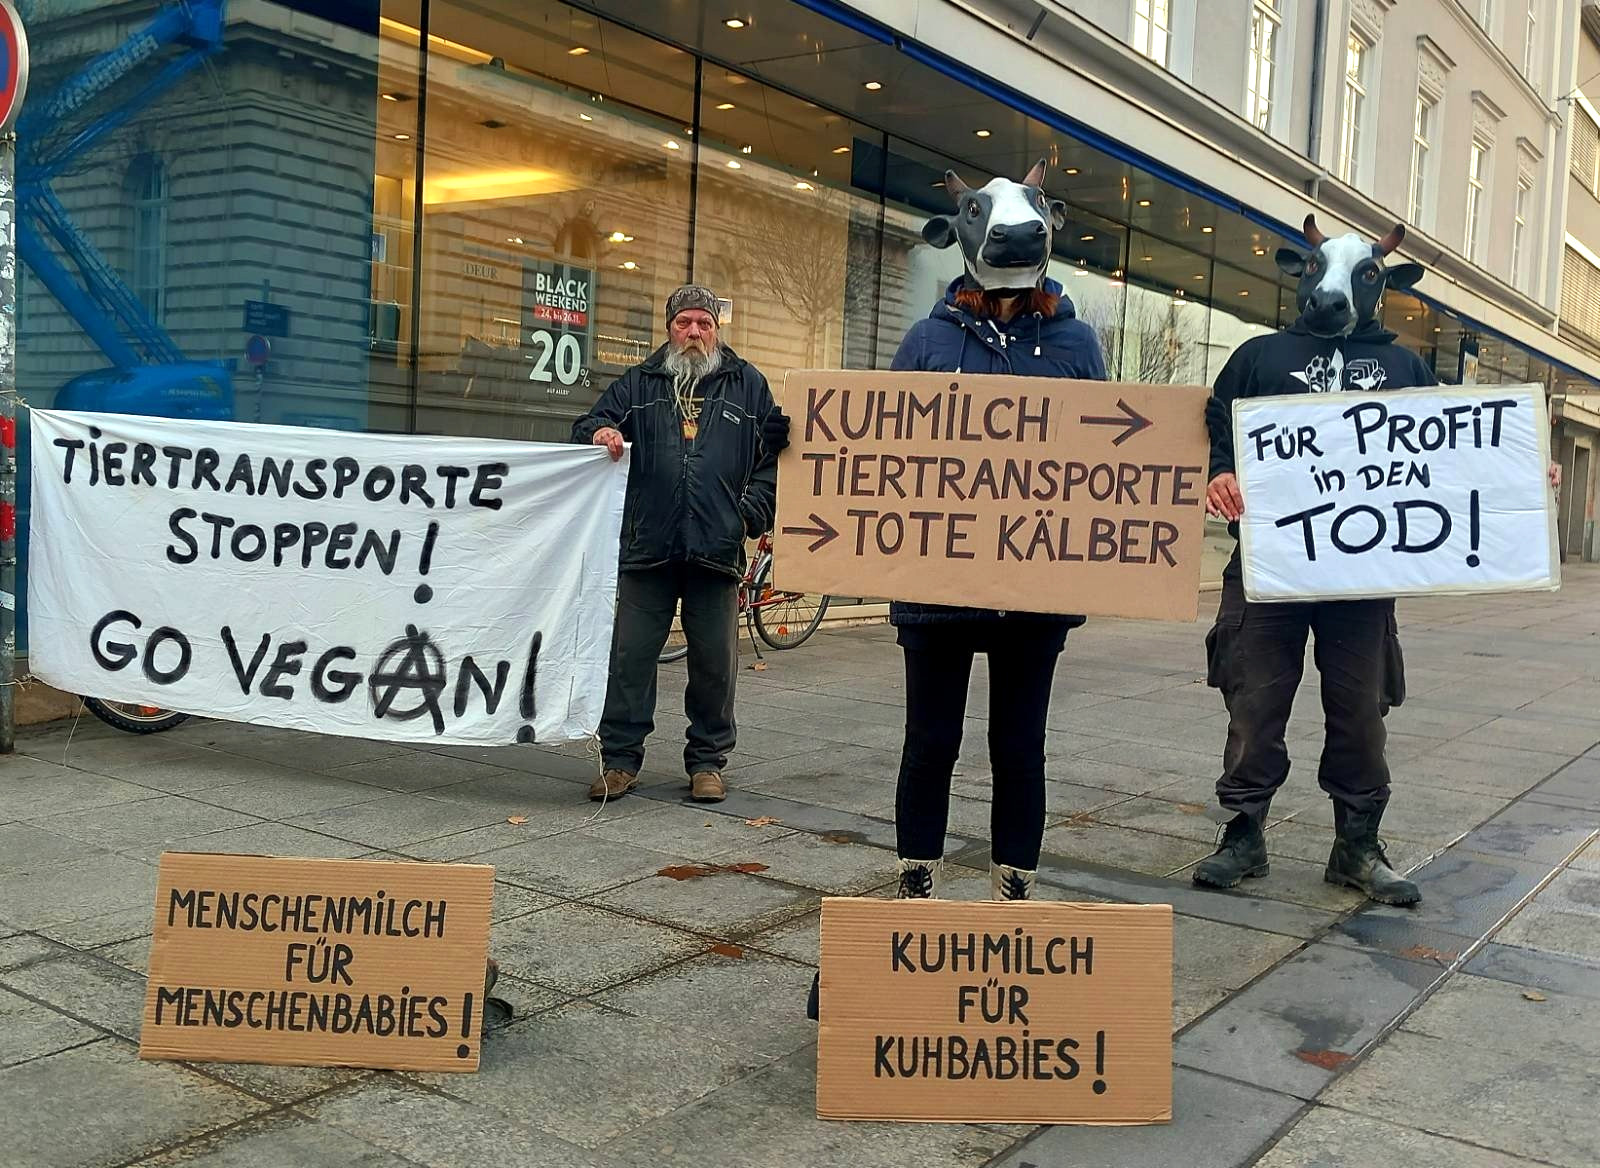 TiERTRANSPORTE
STOPPEN!
GO VEGAN!
BLACK
WEEKEND
24. bis 26.11.
-20%
AUF ALLES*
KUHMiLCH →
TiERTRANSPORTE
→ TOTE KÄLBER
FÜR PROFiT
in DEN
TOD!
MENSCHENMiLCH
FÜR
MENSCHENBABiES!
KUHMiLCH
FÜR
KUHBABiES!